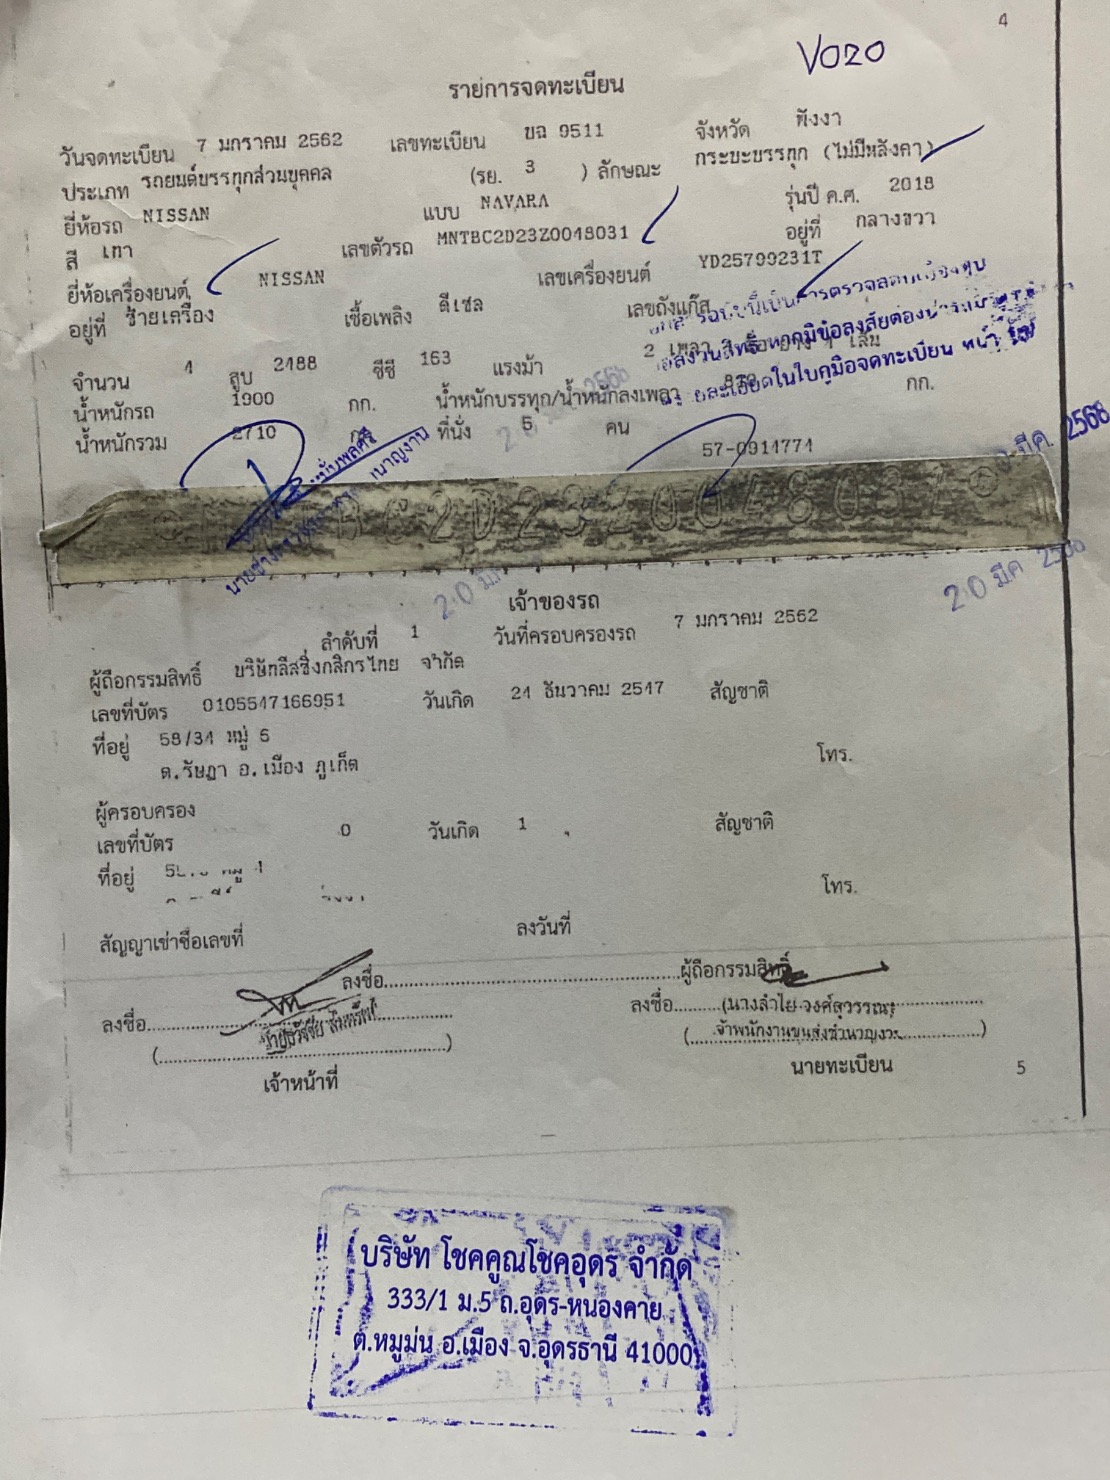 4
V020
รายการจดทะเบียน
วันจดทะเบียน 7 มกราคม 2562 เลขทะเบียน ขฉ 9511 จังหวัด พังงา
ประเภท รถยนต์บรรทุกส่วนบุคคล (รย. 3 ) ลักษณะ กระบะบรรทุก (ไม่มีหลังคา)
ยี่ห้อรถ NISSAN แบบ NAVARA รุ่นปี ค.ศ. 2018
สี เทา เลขตัวรถ MNTBC2D23Z0048031 อยู่ที่ กลางขวา
ยี่ห้อเครื่องยนต์ NISSAN เลขเครื่องยนต์ YD25799231T
อยู่ที่ ซ้ายเครื่อง เชื้อเพลิง ดีเซล เลขถังแก๊ส
จำนวน 4 สูบ 2488 ซีซี 163 แรงม้า 2 เพลา เส้น
น้ำหนักรถ 1900 กก. น้ำหนักบรรทุก/น้ำหนักลงเพลา กก.
น้ำหนักรวม 2710 ที่นั่ง 5 คน
57-0914774
20 มีค 2568
เจ้าของรถ
ลำดับที่ 1 วันที่ครอบครองรถ 7 มกราคม 2562
ผู้ถือกรรมสิทธิ์ บริษัทลีสซิ่งกสิกรไทย จำกัด
เลขที่บัตร 0105547166951 วันเกิด 24 ธันวาคม 2547 สัญชาติ
ที่อยู่ 58/34 หมู่ 6
ต.รัษฎา อ.เมือง ภูเก็ต โทร.
ผู้ครอบครอง
เลขที่บัตร 0 วันเกิด 1 สัญชาติ
ที่อยู่
โทร.
สัญญาเช่าซื้อเลขที่ ลงวันที่
ลงชื่อ ผู้ถือกรรมสิทธิ์
ลงชื่อ ลงชื่อ (นางลำไย วงศ์สุวรรณ)
( ) ( เจ้าพนักงานขนส่งชำนาญงาน )
เจ้าหน้าที่ นายทะเบียน
5
บริษัท โชคคูณโชคอุดร จำกัด
333/1 ม.5 ถ.อุดร-หนองคาย
ต.หมูม่น อ.เมือง จ.อุดรธานี 41000